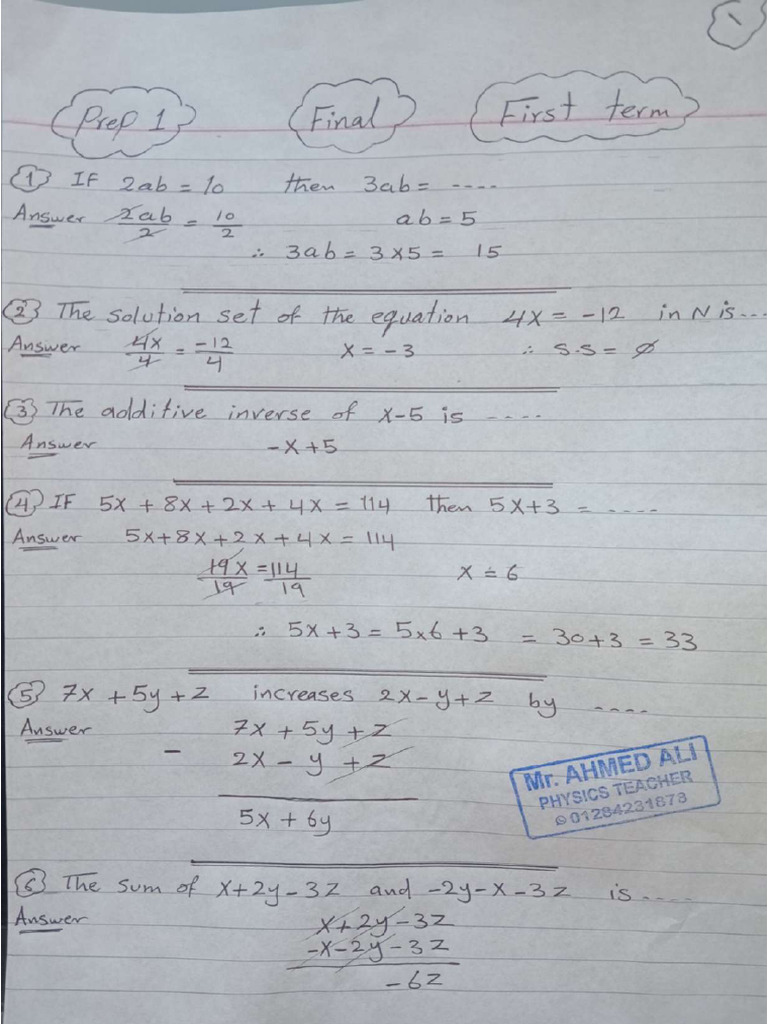 ١
Prep 1 Final First term
① IF 2ab = 10 then 3ab = ----
Answer 2ab/2 = 10/2 ab = 5
∴ 3ab = 3×5 = 15
② The solution set of the equation 4x = -12 in N is...
Answer 4x/4 = -12/4 x = -3 ∴ S.S = ∅
③ The additive inverse of x-5 is ----
Answer -x+5
④ IF 5x + 8x + 2x + 4x = 114 then 5x+3 = ----
Answer 5x+8x+2x+4x = 114
19x/19 = 114/19 x = 6
∴ 5x+3 = 5×6+3 = 30+3 = 33
⑤ 7x+5y+z increases 2x-y+z by ----
Answer 7x+5y+z
- 2x-y+z
5x+6y
Mr. AHMED ALI
PHYSICS TEACHER
01284231678
⑥ The sum of x+2y-3z and -2y-x-3z is ----
Answer x+2y-3z
-x-2y-3z
-6z